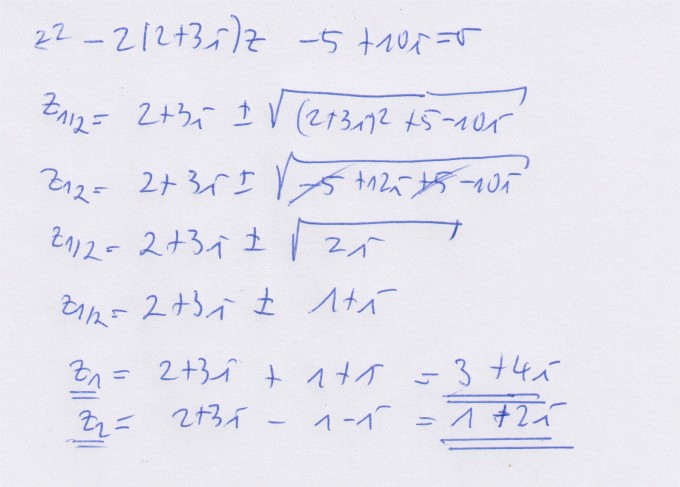 z² - 2(2+3i)z -5 +10i = 0
z₁/₂ = 2+3i ± √((2+3i)² +5 -10i)
z₁₂ = 2+3i ± √(-5 +12i +5 -10i)
z₁/₂ = 2+3i ± √(2i)
z₁/₂ = 2+3i ± 1+i
z₁ = 2+3i + 1+i = 3 +4i
z₂ = 2+3i - 1-i = 1 +2i